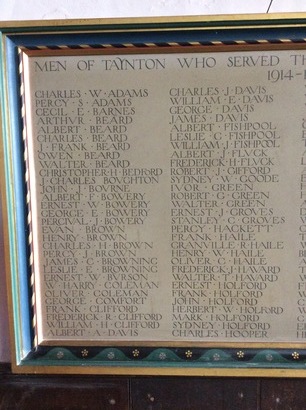 MEN OF TAYNTON WHO SERVED
1914-
CHARLES · W · ADAMS
PERCY · S · ADAMS
CECIL · E · BARNES
ARTHVR · BEARD
ALBERT · BEARD
CHARLES · BEARD
J · FRANK · BEARD
OWEN · BEARD
WALTER · BEARD
CHRISTOPHER · H · BEDFORD
J · CHARLES · BOVGHTON
JOHN · J · BOVRNE
ALBERT · F · BOWERY
ERNEST · W · BOWERY
GEORGE · E · BOWERY
PERCIVAL · J · BOWERY
EVAN · BROWN
HENRY · BROWN
CHARLES · H · BROWN
PERCY · J · BROWN
JAMES · C · BROWNING
LESLIE · E · BROWNING
ERNEST · W · BVRSON
W · HARRY · COLEMAN
OLIVER · COLEMAN
GEORGE · COMFORT
FRANK · CLIFFORD
FREDERICK · R · CLIFFORD
WILLIAM · H · CLIFFORD
ALBERT · A · DAVIS
CHARLES · J · DAVIS
WILLIAM · E · DAVIS
GEORGE · DAVIS
JAMES · DAVIS
ALBERT · FISHPOOL
LESLIE · G · FISHPOOL
WILLIAM · J · FISHPOOL
ALBERT · J · FLVCK
FREDERICK · H · FLVCK
ROBERT · J · GIFFORD
SYDNEY · W · GOODE
IVOR · GREEN
ROBERT · G · GREEN
WALTER · GREEN
ERNEST · J · GROVES
STANLEY · G · GROVES
PERCY · HACKETT
FRANK · HAILE
GRANVILLE · R · HAILE
HENRY · W · HAILE
OLIVER · C · HAILE
FREDERICK · J · HAWARD
WALTER · T · HAWARD
ERNEST · HOLFORD
FRANK · HOLFORD
JOHN · HOLFORD
HERBERT · W · HOLFORD
MARK · HOLFORD
SYDNEY · HOLFORD
CHARLES · HOOPER